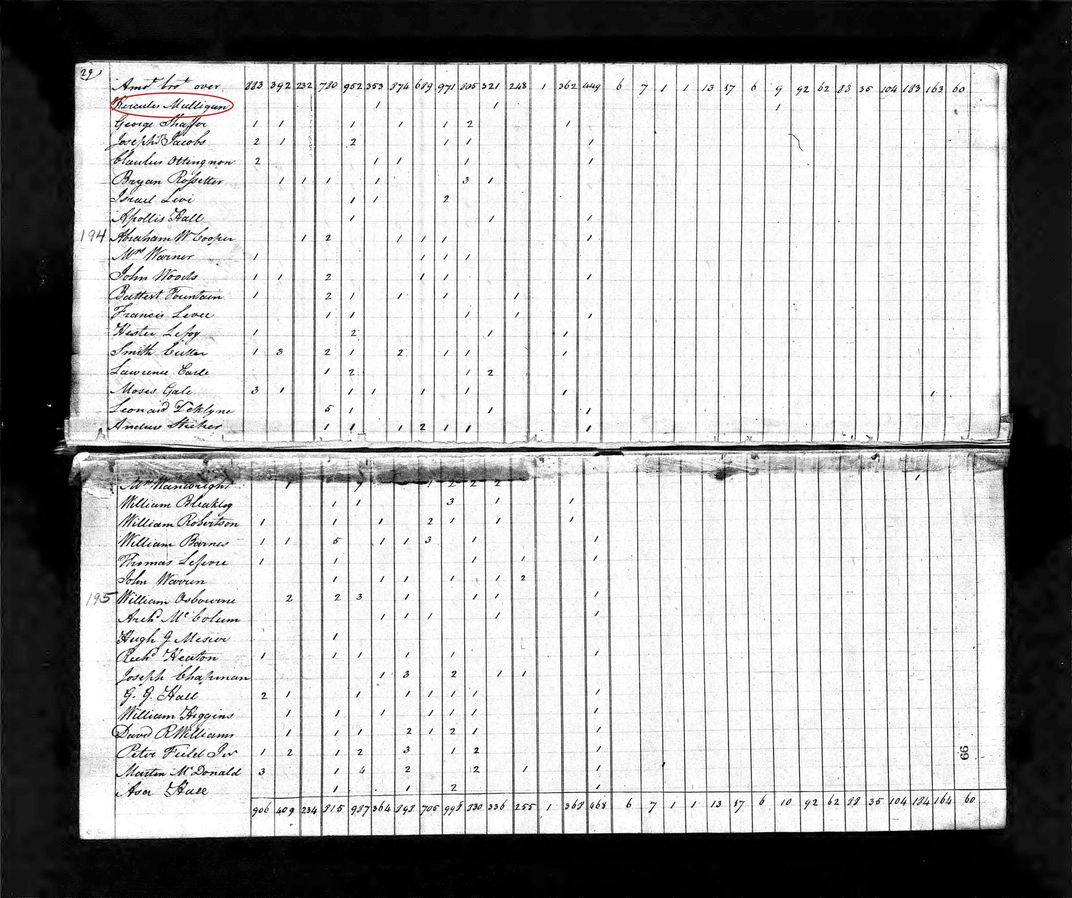 29
Amt brot over 883 392 232 780 952 353 874 689 971 805 321 248 1 362 449 6 7 1 1 13 17 6 9 92 62 83 35 104 183 163 60
Hercules Mulligan 1 1 1
George Shaffer 1 1 1 1 1 2 1
Joseph B Jacobs 2 1 2 1 1 1
Claudius Ottingnon 2 1 1 1 1 1
Bryan Rossetter 1 1 1 1 3 1
Israel Levi 1 1 2
Apollis Hall 1 1 1
194 Abraham W Cooper 1 2 1 1 1 1
Mrs Warner 1 1 1 1
John Woods 1 1 2 1 1 1 1
Fountain 1 2 1 1 1 1
Francis 1 1 1 1 1
Hester 1 2 1 1
Smith 1 3 2 1 2 1 1 1
Lawrence Earle 1 2 1 2
Moses Gale 3 1 1 1 1 1 1 1
Leonard 5 1 1 1
Andrew 1 1 1 2 1 1 1
Mrs Wainwright
William 1 1 3 1 1
William Robertson 1 1 1 2 1 1 1
William Barnes 1 1 5 1 1 3 1 1
Thomas Lefevre 1 1 1 1 1
John Warren 1 1 1 1 1 1 2
195 William Osbourne 2 2 3 1 1 1 1
Archd Mc Colum 1 1 1 1 1
Hugh 1
Richd Heaton 1 1 1 1 1 1 1
Joseph Chapman 1 3 2 1 1
G. G. Hall 2 1 1 1 1 1 1 1
William Higgins 1 1 1 1 1 1 1
David R Williams 1 1 1 2 1 2 1 1
Peter Field Jur 1 2 1 2 3 1 2 1
Martin McDonald 3 1 4 2 2 1 1
Asa Hall 1 1 2 1
906 409 234 815 987 364 898 705 998 830 336 255 1 368 468 6 7 1 1 13 17 6 10 92 62 88 35 104 184 164 60
99